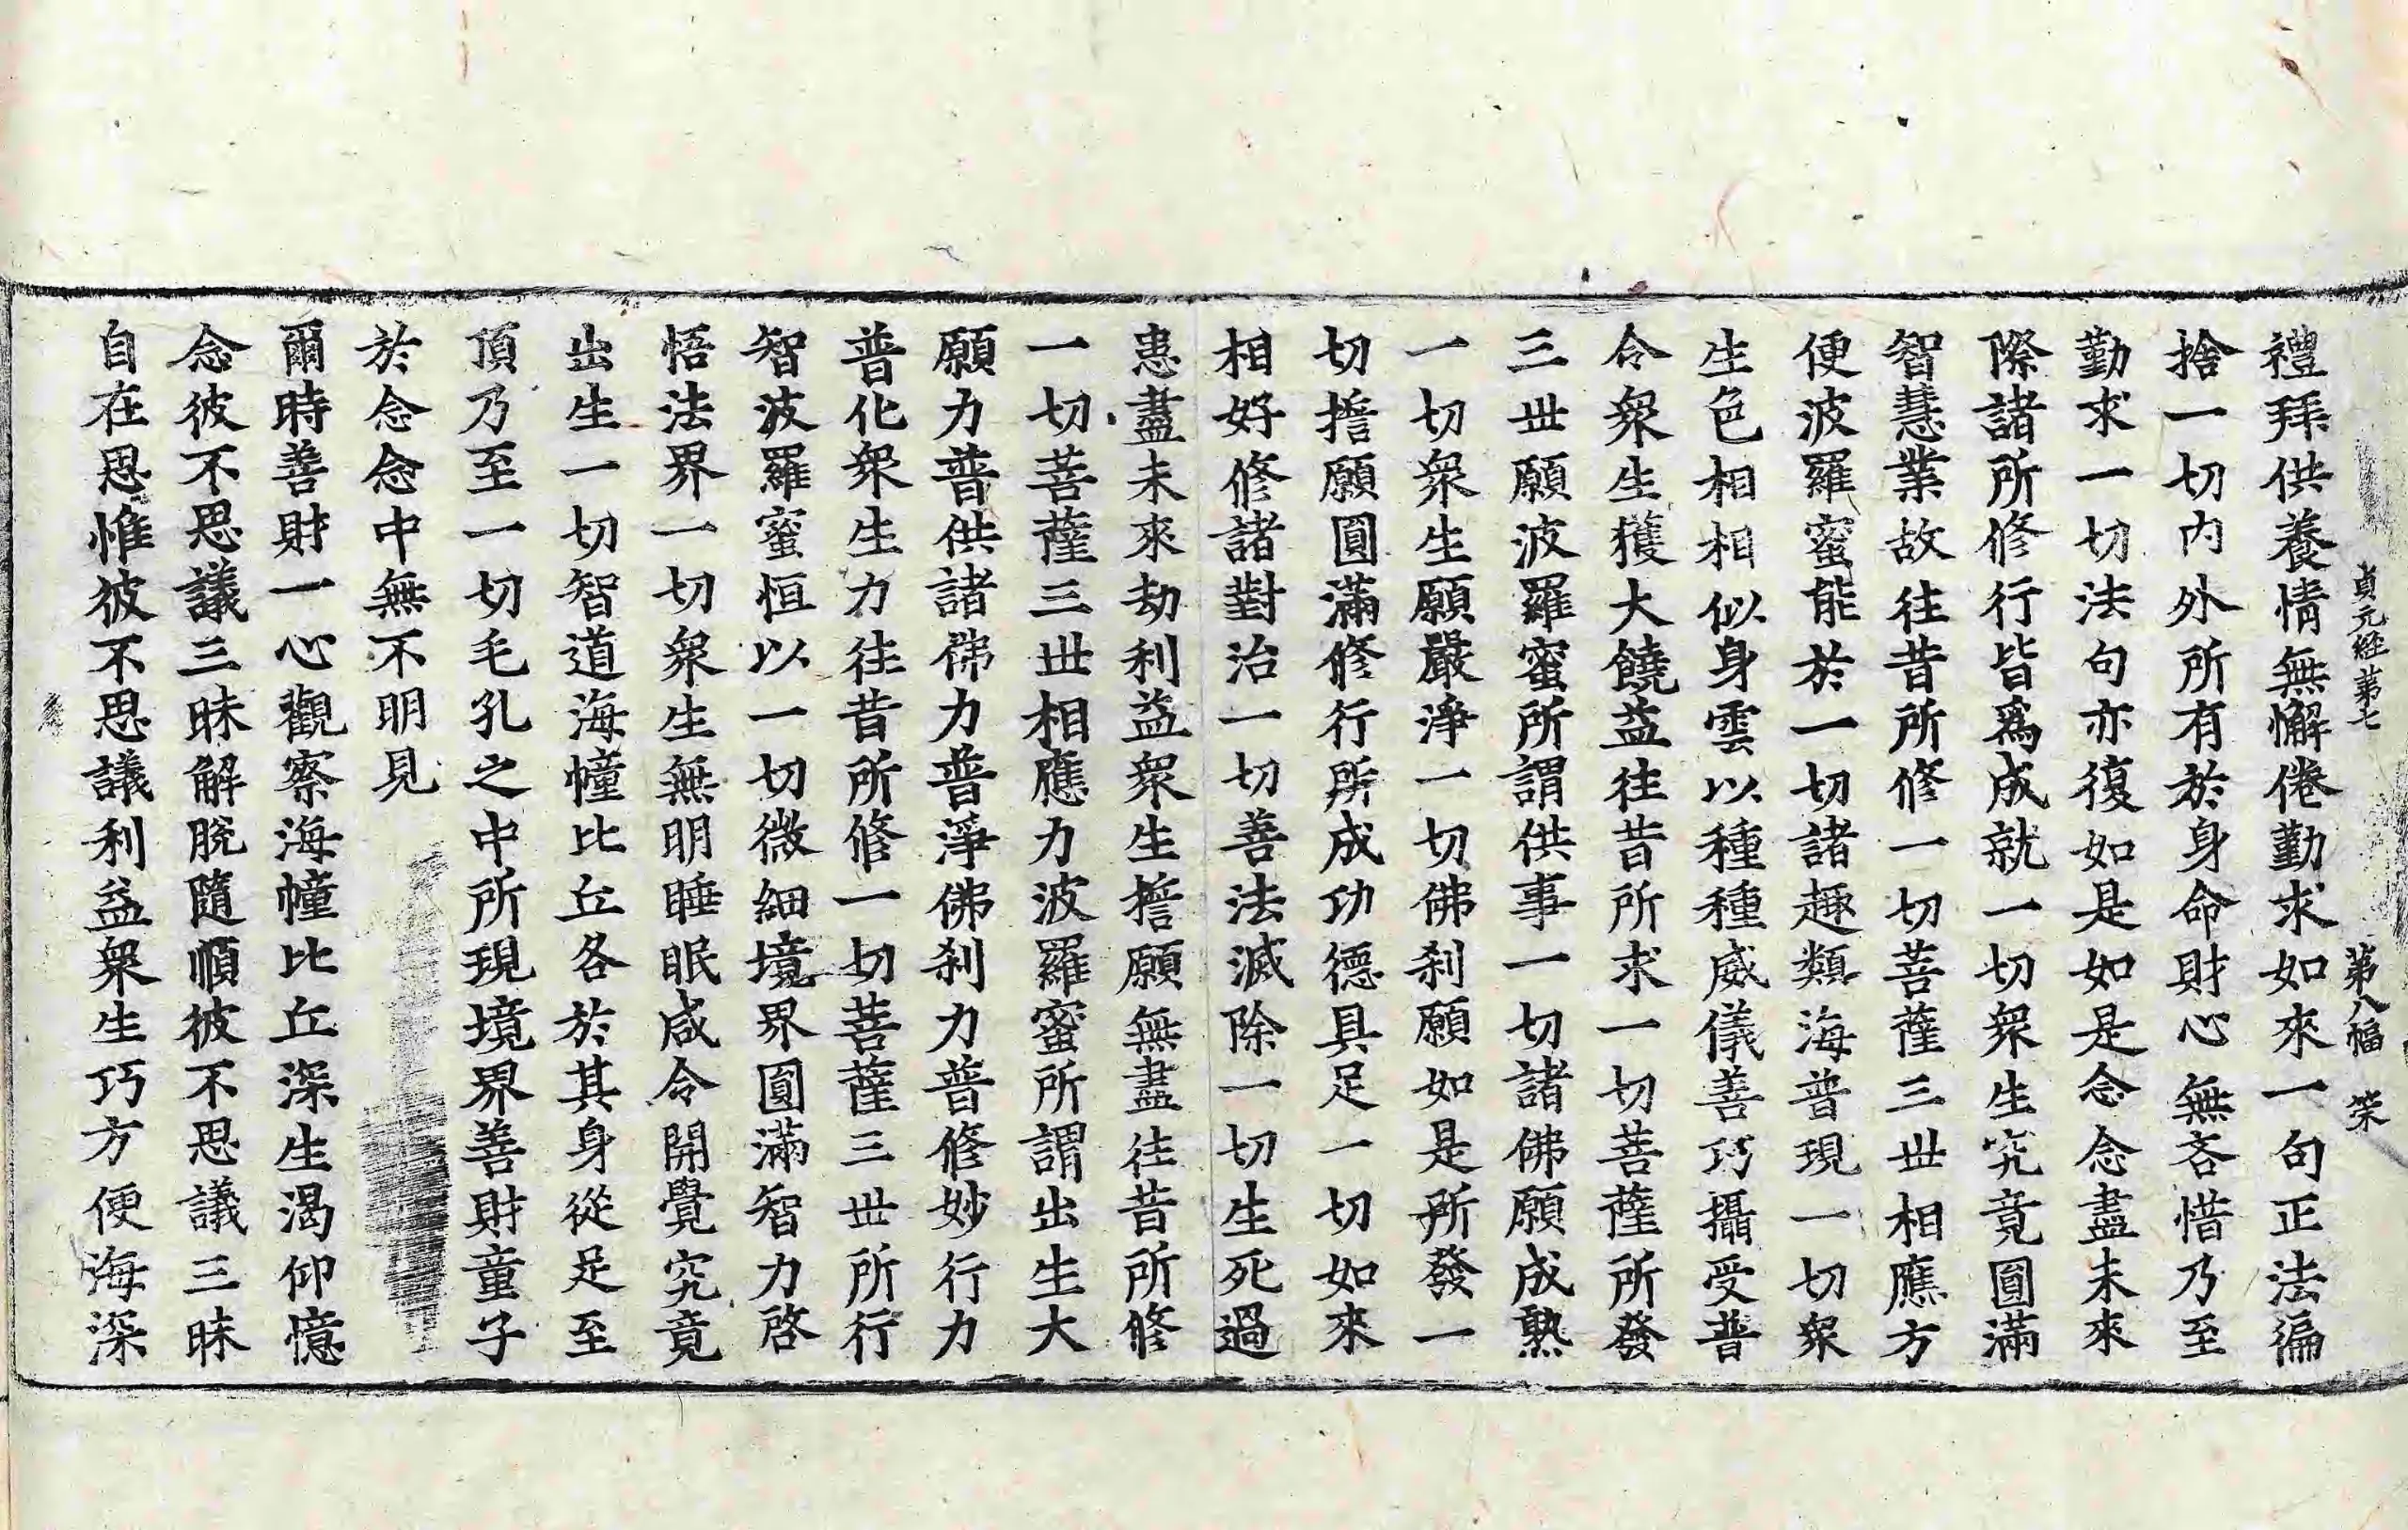 貞元經第七 第八幅 榮
禮拜供養情無懈倦勤求如來一句正法徧
捨一切內外所有於身命財心無吝惜乃至
勤求一切法句亦復如是如是念念盡未來
際諸所修行皆爲成就一切衆生究竟圓滿
智慧業故往昔所修一切菩薩三世相應方
便波羅蜜能於一切諸趣類海普現一切衆
生色相相似身雲以種種威儀善巧攝受普
令衆生獲大饒益往昔所求一切菩薩所發
三世願波羅蜜所謂供事一切諸佛願成熟
一切衆生願嚴淨一切佛刹願如是所發一
切擔願圓滿修行所成功德具足一切如來
相好修諸對治一切善法滅除一切生死過
患盡未來劫利益衆生擔願無盡往昔所修
一切菩薩三世相應力波羅蜜所謂出生大
願力普供諸佛力普淨佛刹力普修妙行力
普化衆生力往昔所修一切菩薩三世所行
智波羅蜜恒以一切微細境界圓滿智力啓
悟法界一切衆生無明睡眠咸令開覺究竟
出生一切智道海幢比丘各於其身從足至
頂乃至一切毛孔之中所現境界善財童子
於念念中無不明見
爾時善財一心觀察海幢比丘深生渴仰憶
念彼不思議三昧解脫隨順彼不思議三昧
自在思惟彼不思議利益衆生巧方便海深